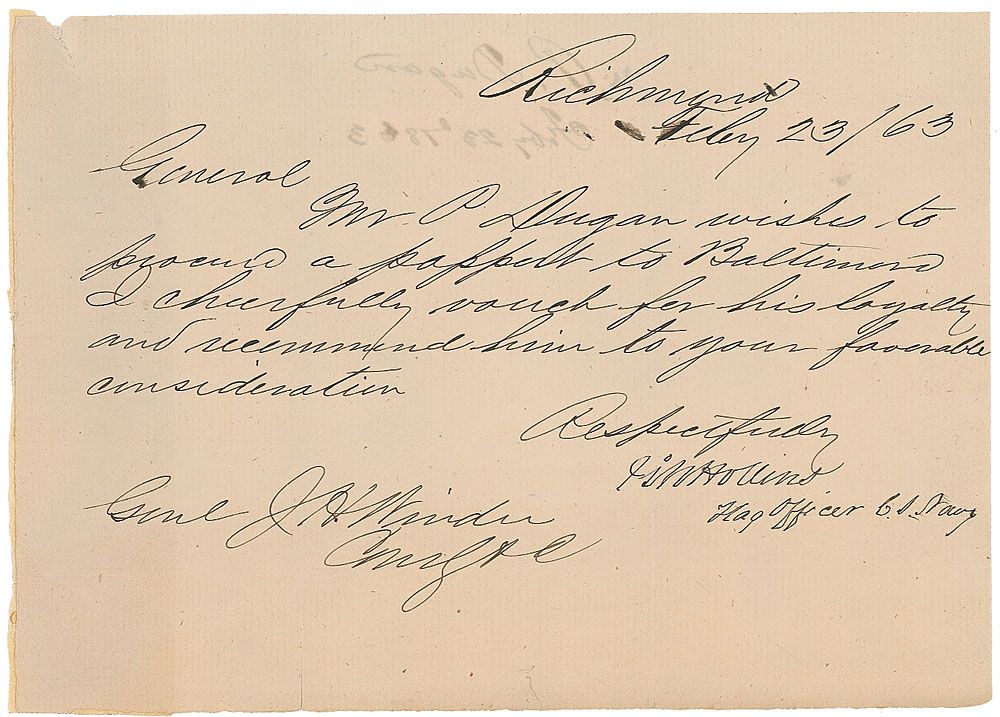 Richmond
Feby 23/63
General
Mr. P Dugan wishes to
procure a passport to Baltimore
I cheerfully vouch for his loyalty
and recommend him to your favorable
consideration
Respectfully
Hollins
Flag Officer C.S. Navy
Genl J.H. Winder
Comg &c